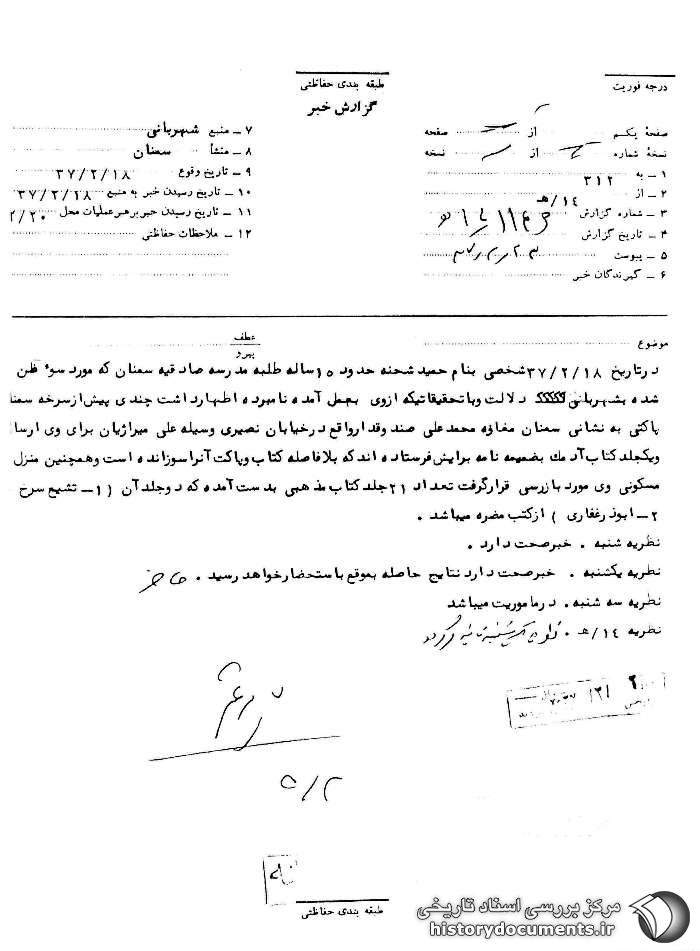 درجه فوریت
طبقه بندی حفاظتی
گزارش خبر
صفحهٔ یکم از صفحه
نسخهٔ شماره از نسخه
۱ ـ به ۳۱۲
۲ ـ از ۱۴/هـ
۳ ـ شماره گزارش
۴ ـ تاریخ گزارش
۵ ـ پیوست
۶ ـ گیرندگان خبر
۷ ـ منبع شهربانی
۸ ـ منشأ سمنان
۹ ـ تاریخ وقوع ۳۷/۲/۱۸
۱۰ ـ تاریخ رسیدن خبر به منبع ۳۷/۲/۱۸
۱۱ ـ تاریخ رسیدن خبر برهبر عملیات محل ۲/۲۰
۱۲ ـ ملاحظات حفاظتی
موضوع
عطف
پیرو
درتاریخ ۳۷/۲/۱۸ شخصی بنام حمید شحنه حدود ۱۵ ساله طلبه مدرسه صادقیه سمنان که مورد سوء ظن
شده بشهربانی دلالت وباتحقیقاتیکه ازوی بعمل آمده نامبرده اظهارداشت چندی پیش ازسرخه سمنا
پاکتی به نشانی سمنان مغازه محمدعلی صندوقدار واقع درخیابان نصیری وسیله علی میراژیان برای وی ارسا
ویکجلدکتاب آدمك بضمیمه نامه برایش فرستاده اندکه بلافاصله کتاب وپاکت آنراسوزانده است وهمچنین منزل
مسکونی وی مورد بازرسی قرارگرفت تعداد ۲۱جلدکتاب مذهبی بدست آمده که دوجلدآن (۱ـ تشیع سرخ
۲ـ ابوذرغفاری ) ازکتب مضره میباشد .
نظریه شنبه . خبرصحت دارد .
نظریه یکشنبه . خبرصحت دارد نتایج حاصله بموقع باستحضارخواهد رسید .
نظریه سه شنبه. درماموریت میباشد
نظریه ۱۴/هـ .
۵/۲
طبقه بندی حفاظتی
مرکز بررسی اسناد تاریخی
historydocuments.ir